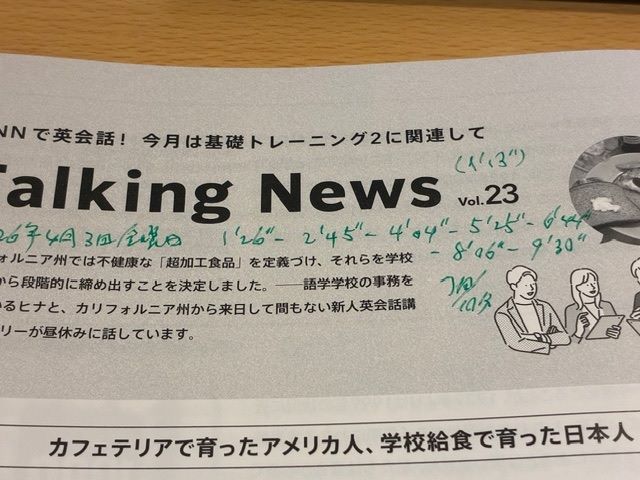 NNで英会話! 今月は基礎トレーニング2に関連して
Talking News Vol.23
26年4月3日金曜日 1'26" - 2'45" - 4'04" - 5'25" - 6'44"
- 8'06" - 9'30"
フォルニア州では不健康な「超加工食品」を定義づけ、それらを学校
から段階的に締め出すことを決定しました。――語学学校の事務を
いるヒナと、カリフォルニア州から来日して間もない新人英会話講
リーが昼休みに話しています。
カフェテリアで育ったアメリカ人、学校給食で育った日本人